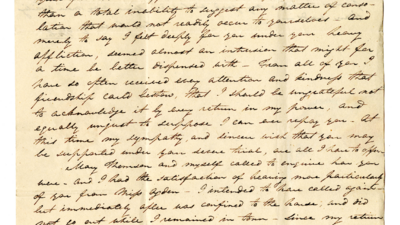 than a total inability to suggest any matter of conso-
lation that would not readily occur to yourselves - and
merely to say I felt deeply for you under your heavy
affliction, seemed almost an intrusion that might for
a time be better dispensed with - From all of you I
have so often received every attention and kindness that
friendship could bestow, that I should be ungrateful not
to acknowledge it by every return in my power, and
equally unjust to suppose I can ever repay you - At
this time my sympathy and sincere wish that you may
be supported under your severe trial, are all I have to offer
May Thomson and myself called to enquire how you
were - and I had the satisfaction of hearing more particularly
of you from Miss Ogden - I intended to have called again -
but immediately after was confined to the house, and did
not go out while I remained in town - since my return